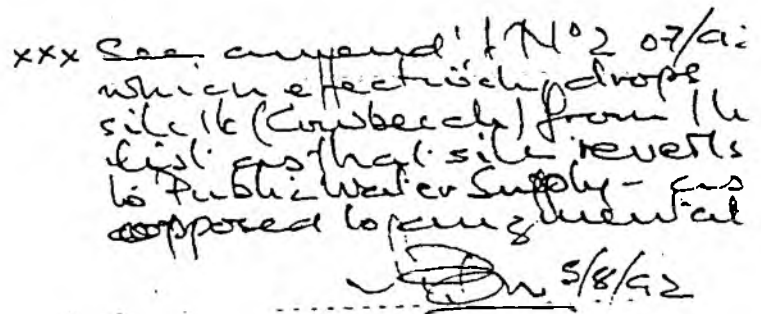 xxx See amend't No2 07/92
which effectively drops
site 16 (Cowbeech) from the
list as that site reverts
to Public Water Supply - as
opposed to augmental
5/8/92